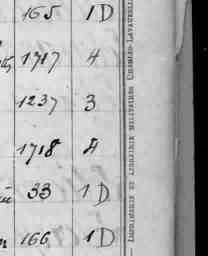 165 1 D
1717 4
1237 3
1718 4
33 1 D
166 1 D
— IMPRIMERIE ET LIBRAIRIE MILITAIRES CHARLES-LAVAUZELLE